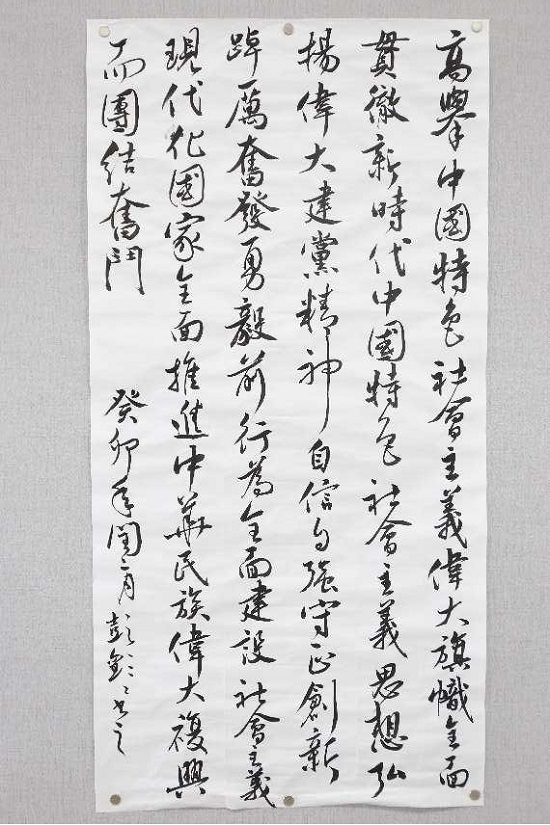 高舉中國特色社會主義偉大旗幟全面
貫徹新時代中國特色社會主義思想弘
揚偉大建黨精神自信自強守正創新
踔厲奮發勇毅前行為全面建設社會主義
現代化國家全面推進中華民族偉大複興
而團結奮鬥
癸卯年閏二月彭